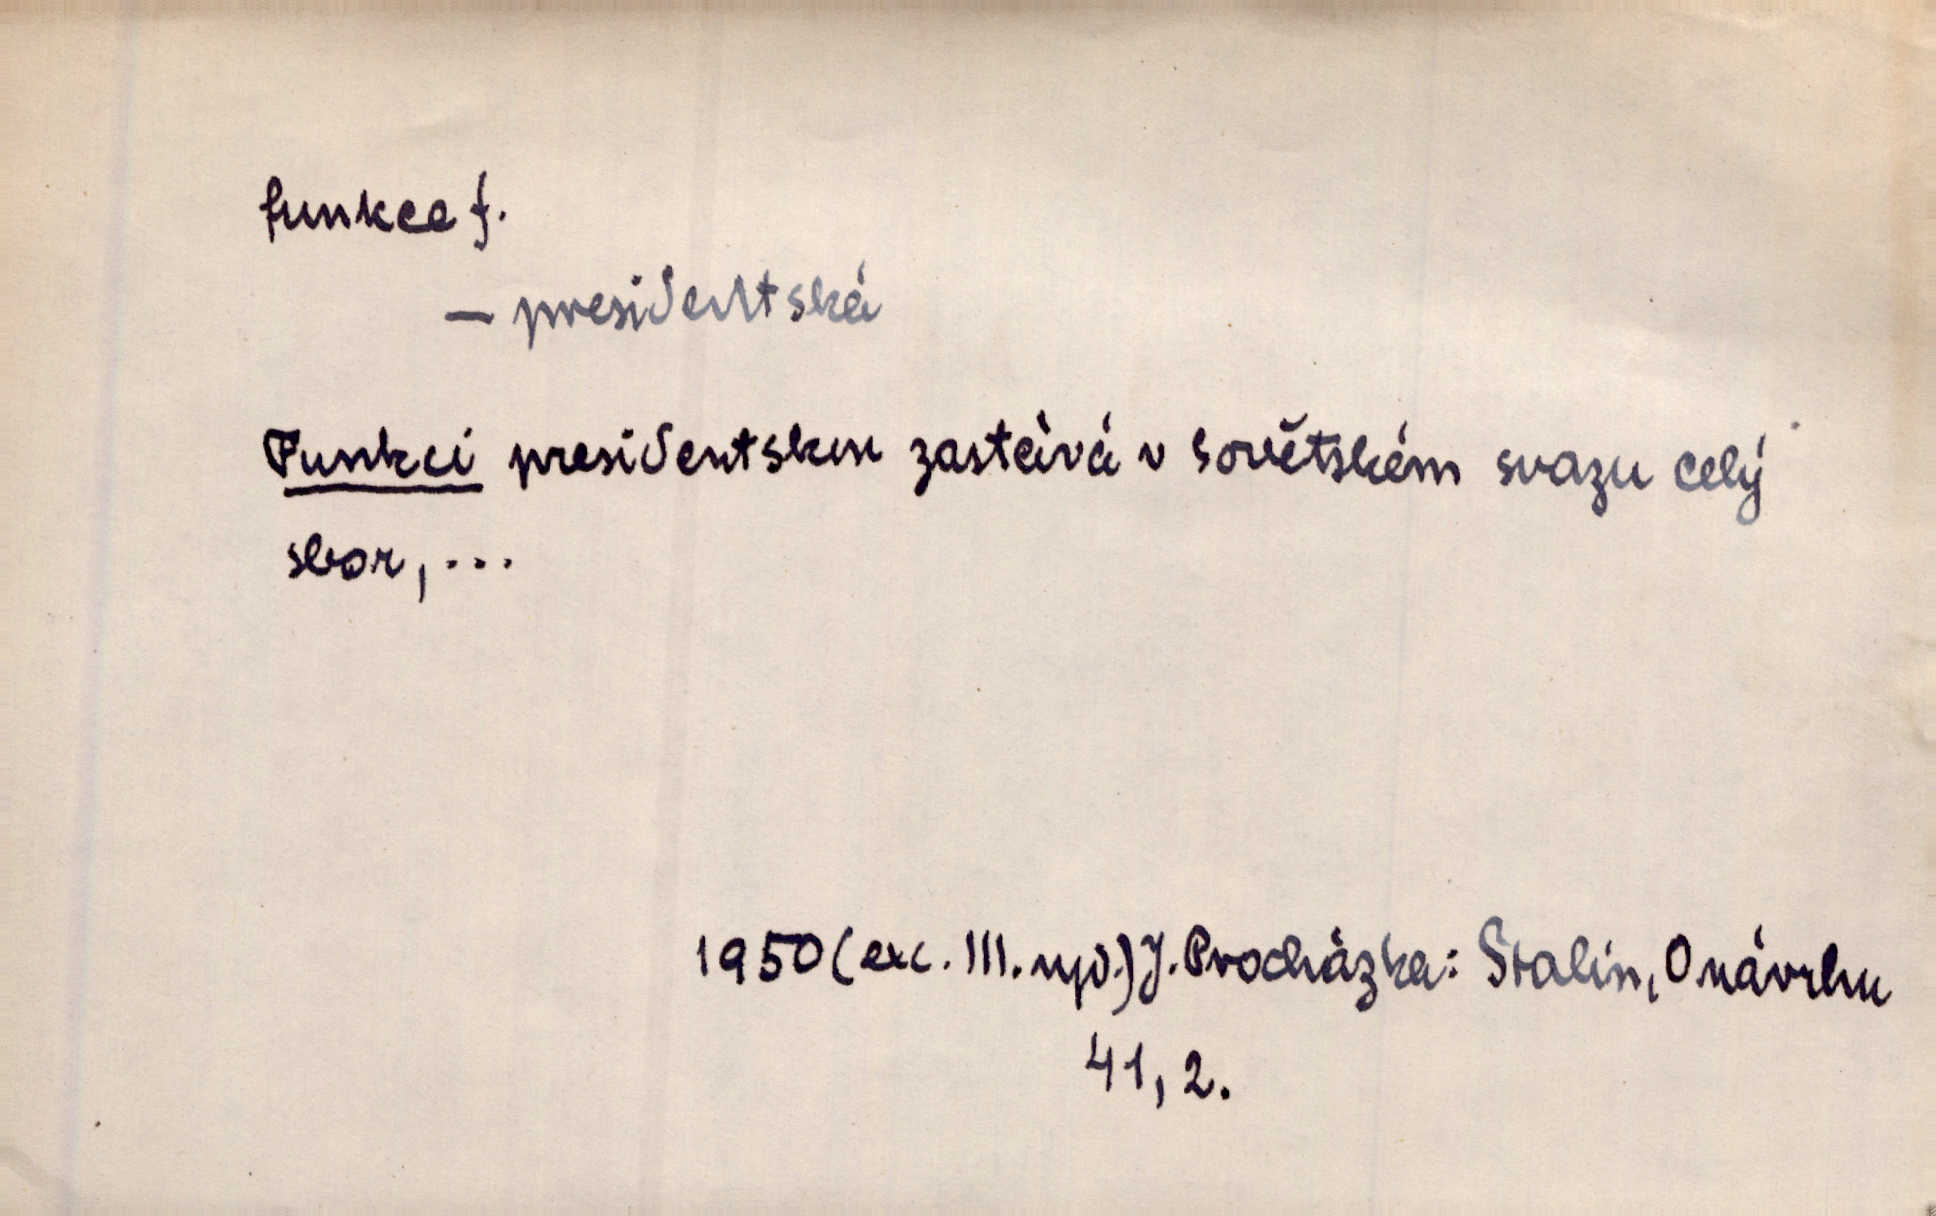 funkce f.
— presidentská
Funkci presidentskou zastává v Sovětském svazu celý
sbor, ...
1950 (exc. III. vyd.) J. Procházka: Stalin, O návrhu
41, 2.